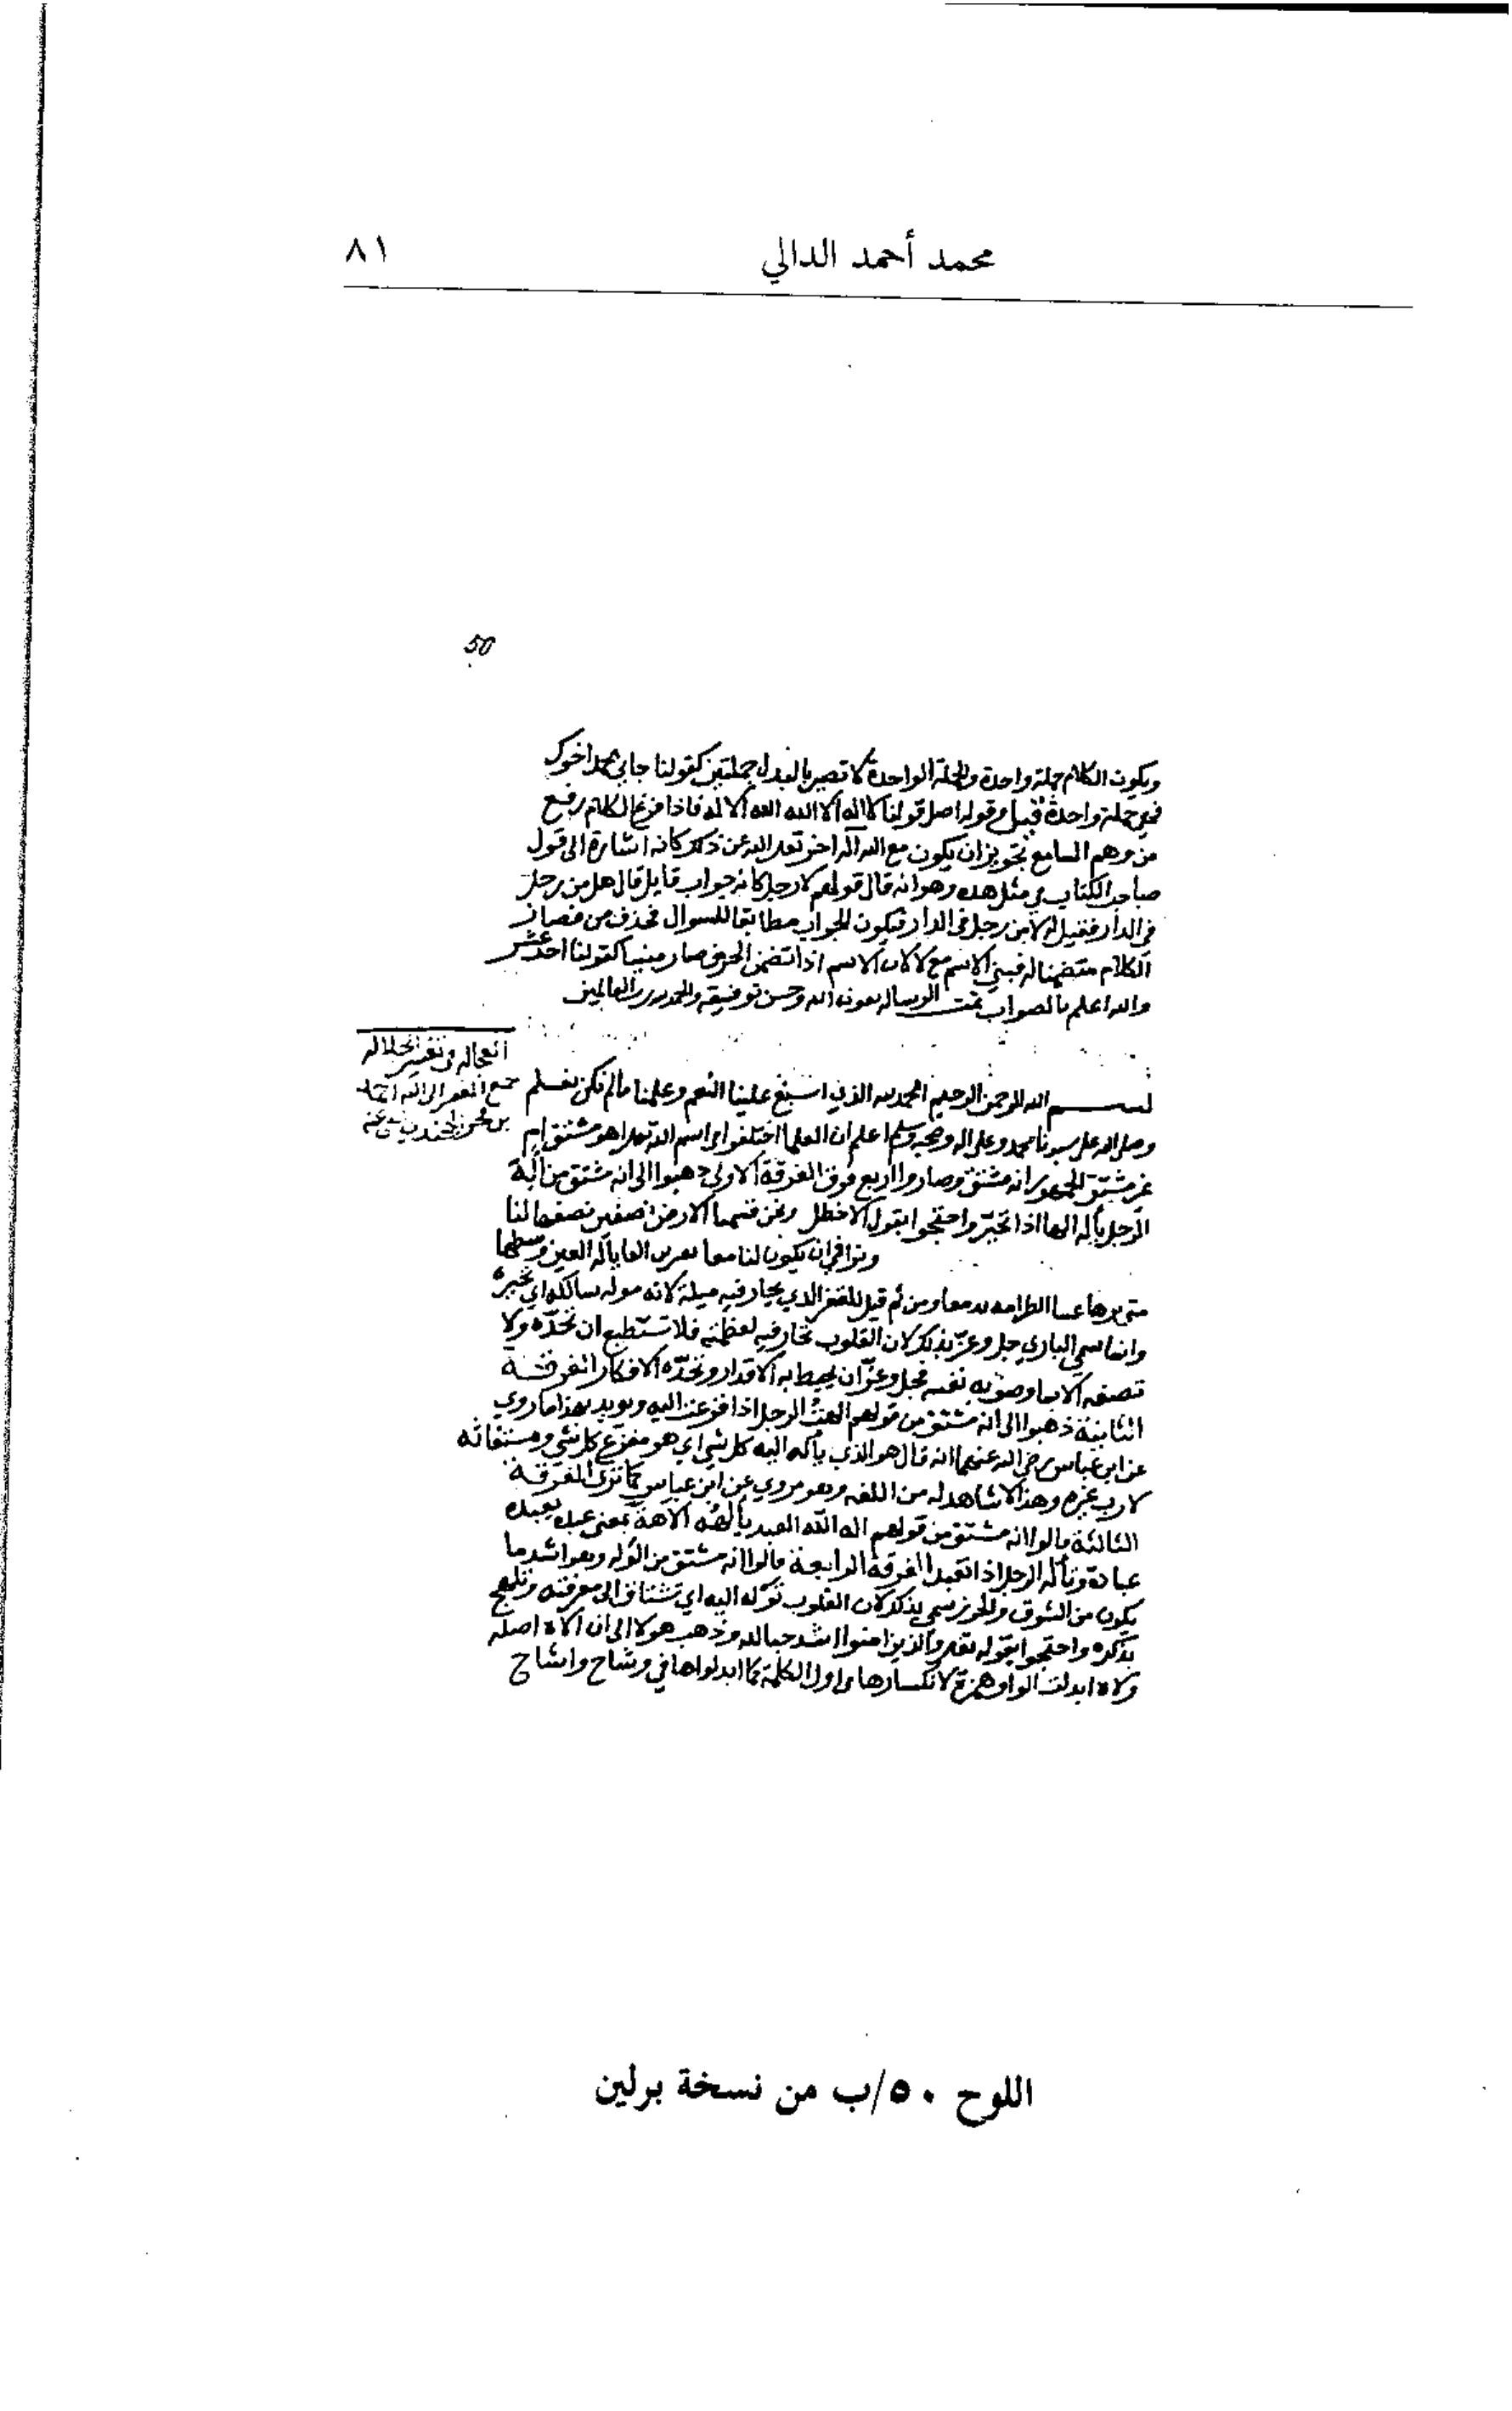 محمد أحمد الدالي
٨١
50
ويكون الكلام جملة واحدة والجملة الواحدة لا تصير بالبدل جملتين كقولنا جاني محمد اخوك
فهي جملة واحدة قيل وقوله اصل قولنا لا اله الا الله الله الاله فاذا فرغ الكلام رفع
من وهم السامع تجويز ان يكون مع الله اله اخر تعلى الله عن ذلك كانه اشارة الى قول
صاحب الكتاب في مثل هذه وهو انه قال قولهم لا رجل كانه جواب قايل قال هل من رجل
في الدار فقيل له لا من رجل في الدار فيكون الجواب مطابقا للسوال فحذف من فصار
الكلام متضمنا له فبني الاسم مع لا لان الاسم اذا تضمن الحرف صار مبنيا كقولنا احد عشر
والله اعلم بالصواب تمت الرسالة بعون الله وحسن توفيقه والحمد لله رب العالمين
العجالة في تفسير الجلالة
جمع الفقير الى الله احمد
بن محمد الخجندي عفي عنه
بسم الله الرحمن الرحيم الحمد لله الذي اسبغ علينا النعم وعلمنا ما لم نكن نعلم
وصلى الله على سيدنا محمد وعلى اله وصحبه وسلم اعلم ان العلما اختلفوا في اسم الله تعلى اهو مشتق ام
غير مشتق الجمهور انه مشتق وصاروا اربع فرق الفرقة الاولى ذهبوا الى انه مشتق من اله
الرجل يأله الها اذا تحير واحتجوا بقول الاخطل ونحن قسمنا الارض نصفين نصفها لنا
ونرافي ان يكون لنا معا بعرين الفا يأله العين وسطها
متى يرها ومن ثم قيل للقفر الذي يحار فيه ميلة لانه موله سالكه اي محيره
وانما سمي الباري جل وعز بذلك لان القلوب تحار فيه لعظمته فلا تستطيع ان تحده ولا
تصفه الا بما وصف به نفسه فجل وعز ان يحيط به الاقدار وتحده الافكار الفرقة
الثانية ذهبوا الى انه مشتق من قولهم الهت الرجل اذا فزعت اليه ويويد هذا ما روي
عن ابن عباس رضي الله عنهما انه قال هو الذي يأله اليه كل شي اي هو مفزع كل شي ومستغاثه
لا رب غيره وهذا لا شاهد له من اللغه وهو مروي عن ابن عباس كما ترى الفرقة
الثالثة قالوا انه مشتق من قولهم اله الله العبد يألهه الاهة بمعنى عبده يعبده
عبادة وتأله الرجل اذا تعبد الفرقة الرابعة قالوا انه مشتق من الوله وهو اشد ما
يكون من الشوق والحزن سمي بذلك لان القلوب توله اليه اي تشتاق الى معرفته وتلهج
بذكره واحتجوا بقوله تعلى والذين امنوا اشد حبا لله وذهب هولا الى ان الاه اصله
ولاه ابدلت الواو همزة لانكسارها في اول الكلمة كما ابدلوها في وشاح واشاح
اللوح ٥٠/ب من نسخة برلين